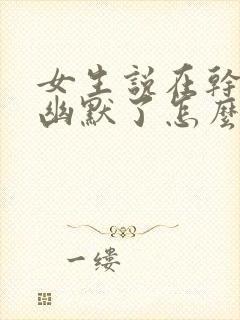 女生说在幹
幽默了怎麼
一缕